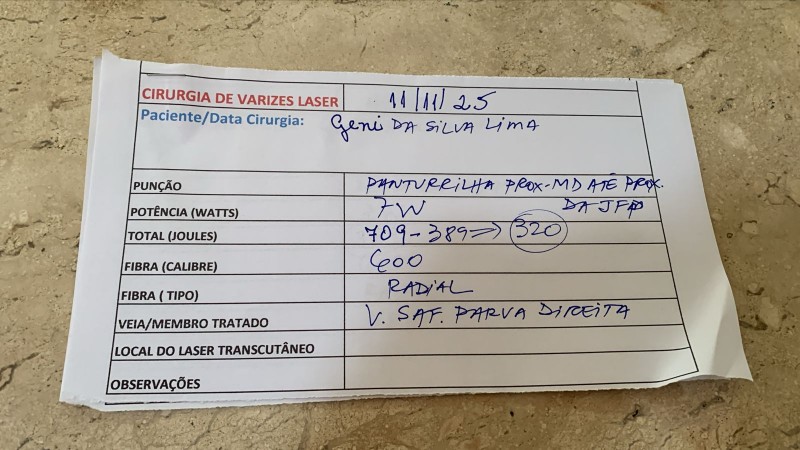 CIRURGIA DE VARIZES LASER 11/11/25
Paciente/Data Cirurgia: Geni DA SILVA LIMA
PUNÇÃO PANTURRILHA PROX-MD ATÉ PROX.
DA JFP
POTÊNCIA (WATTS) 7W
TOTAL (JOULES) 709-389=> 320
FIBRA (CALIBRE) 600
FIBRA ( TIPO) RADIAL
VEIA/MEMBRO TRATADO V. SAF. PARVA DIREITA
LOCAL DO LASER TRANSCUTÂNEO
OBSERVAÇÕES